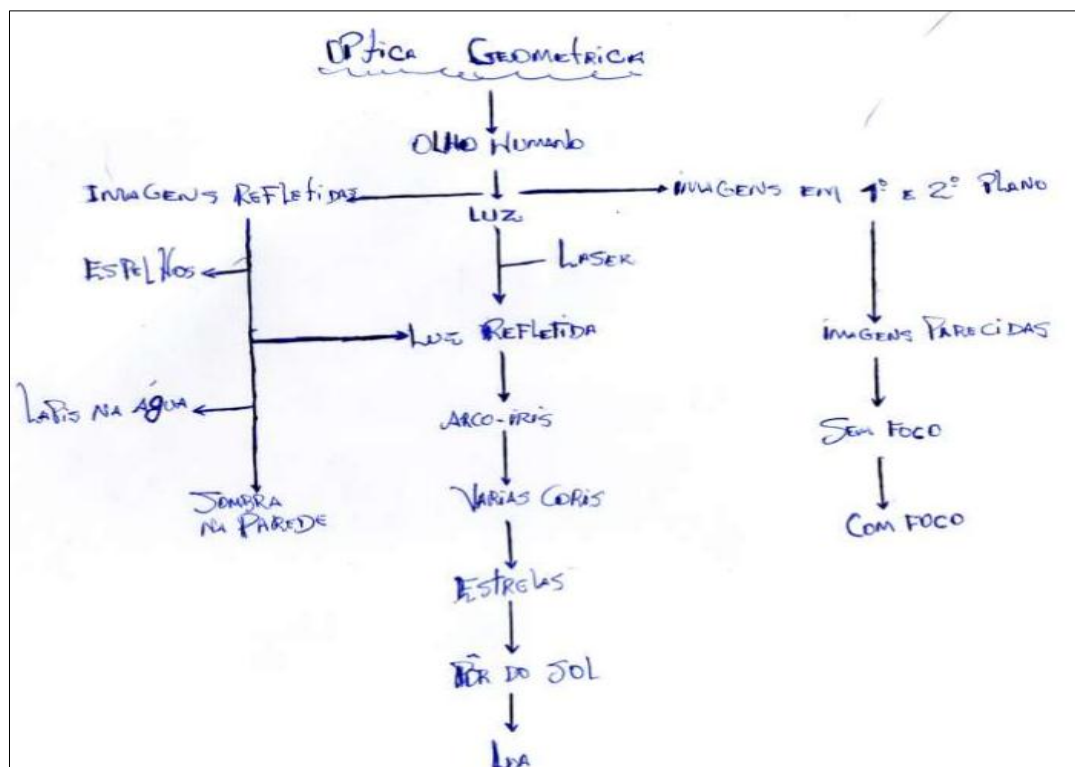 Óptica Geometrica
Olho Humano
Imagens Refletidas
Luz
Imagens em 1º e 2º Plano
Espelhos
Laser
Luz Refletida
Imagens Parecidas
Lapis na água
Arco-iris
Sem foco
Sombra
na Parede
Varias Coris
Com foco
Estrelas
Pôr do Sol
Lua